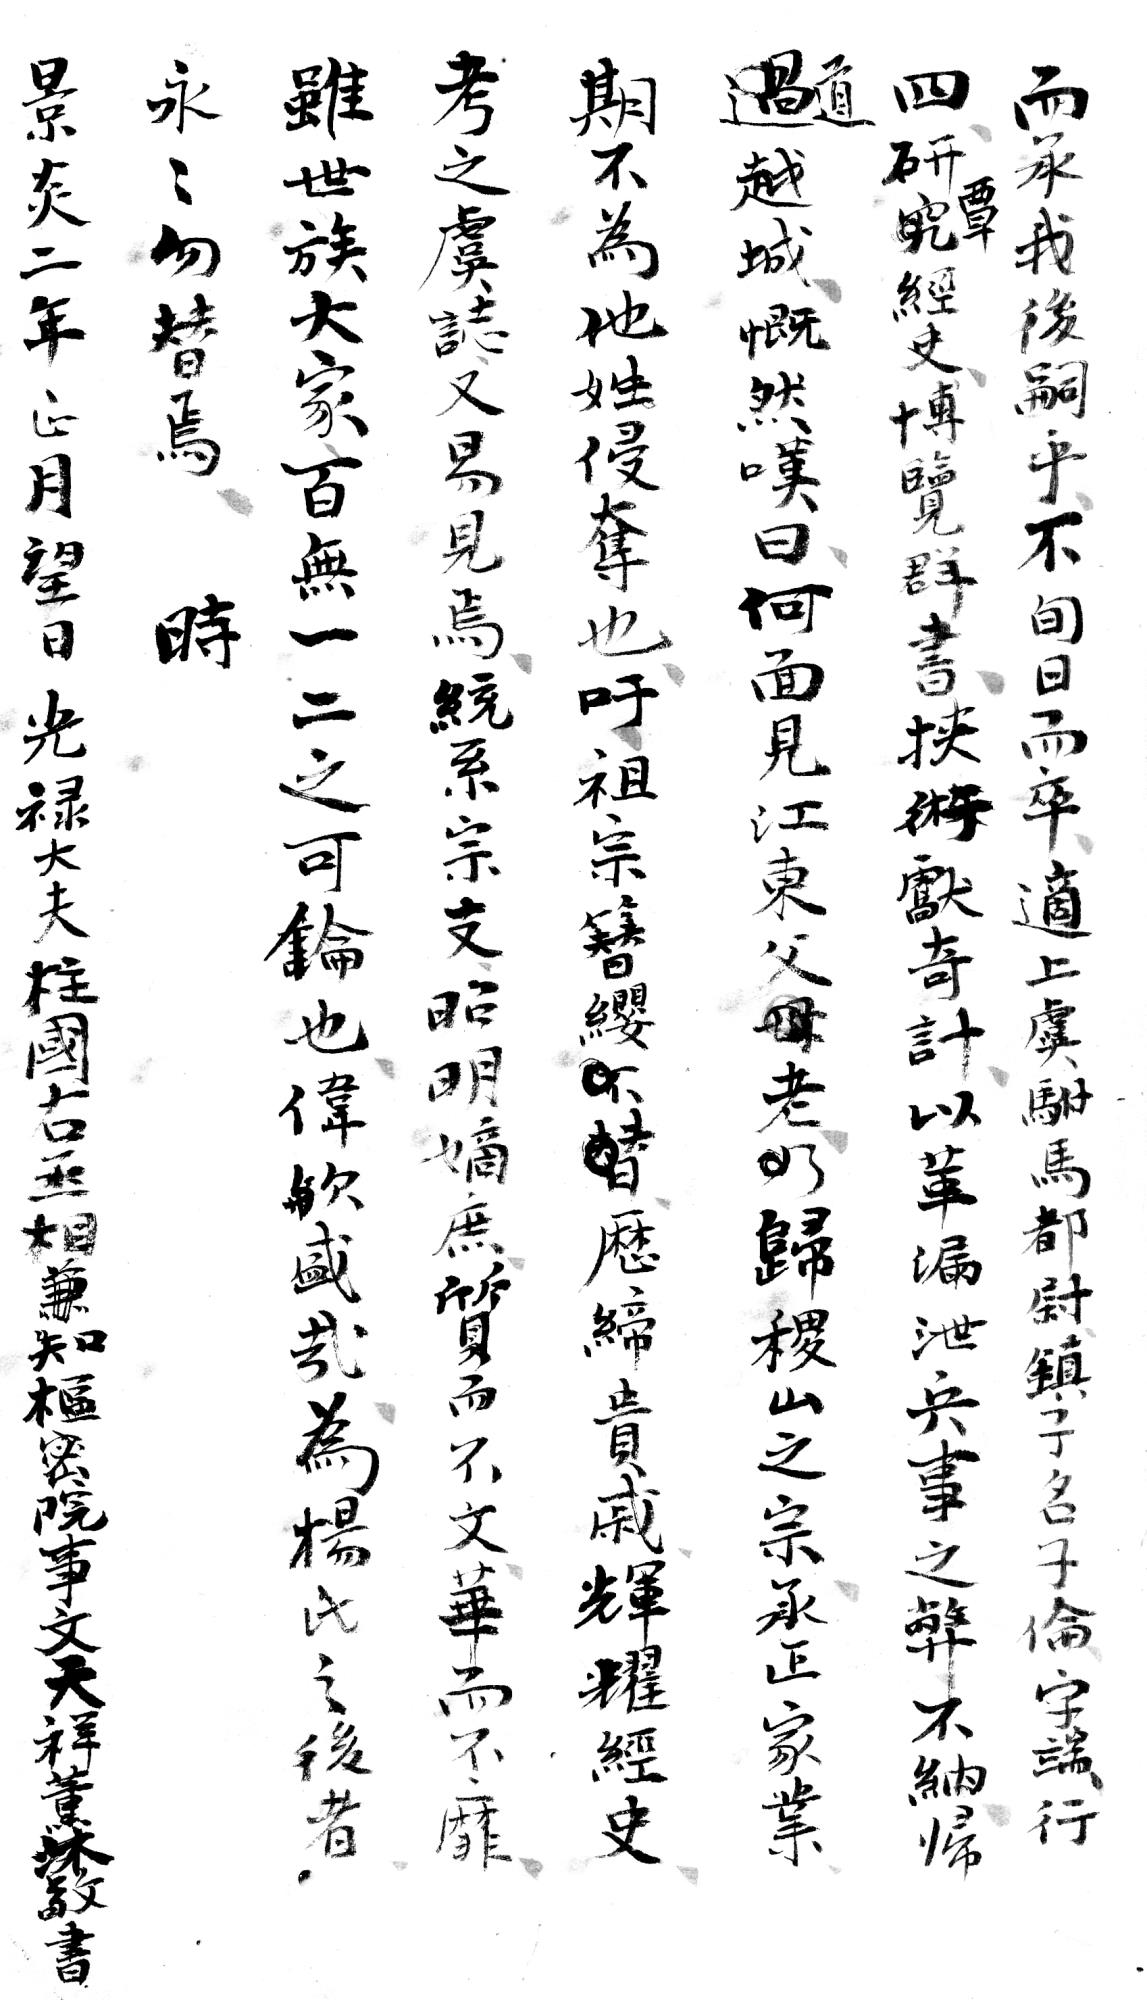 而承我後嗣乎不旬日而卒適上虞駙馬都尉鎮子名子倫字端行
四研覃究經史博覽群書挾術獻奇計以革漏泄兵事之弊不納帰
道過越城慨然嘆曰何面見江東父母老乃歸稷山之宗承正家業
期不為他姓侵奪也吁祖宗簪纓不替歷締貴戚輝耀經史
考之虞誌又易見焉統系宗支昭明嫡庶質而不文華而不靡
雖世族大家百無一二之可錀也偉歟盛哉為楊氏之後者
永〻勿替焉 時
景炎二年正月望日光禄大夫柱國右丞相兼知樞密院事文天祥薰沐敬書